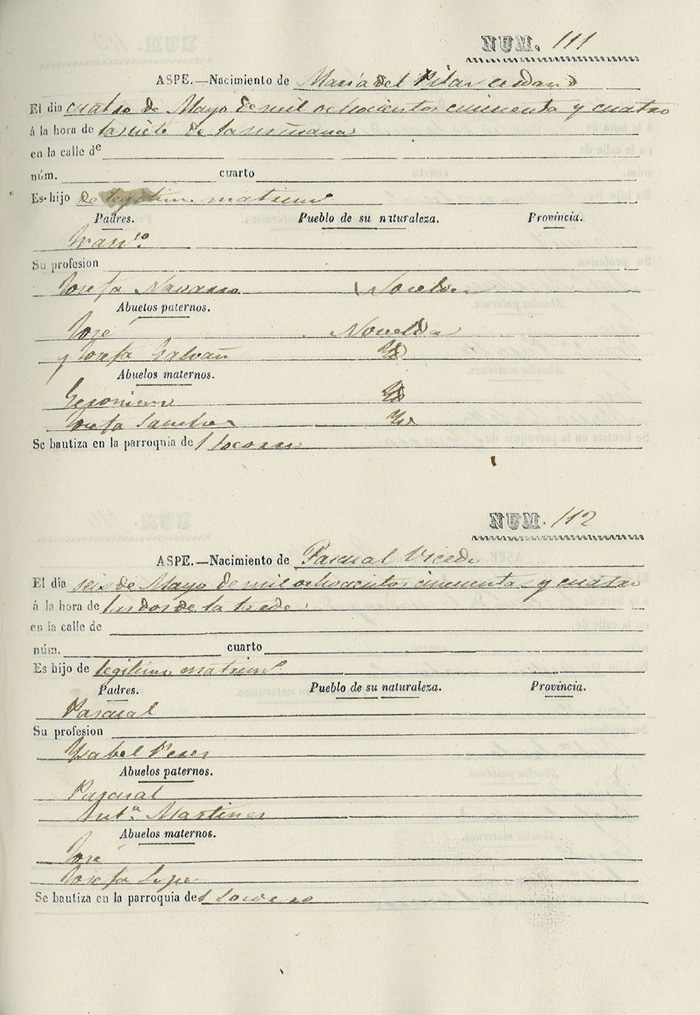 NUM. 111
ASPE.—Nacimiento de María del Pilar Cerdan
El dia cuatro de Mayo de mil ochocientos cincuenta y cuatro
á la hora de las siete de la mañana
en la calle de
núm. cuarto
Es hijo de legitim. matrim.
Padres. Pueblo de su naturaleza. Provincia.
Fran.co
Su profesion
Josefa Navarro Novelda
Abuelos paternos.
José Novelda
y Josefa Galvañ Yd
Abuelos maternos.
Geronimo Yd
Josefa Sanchez Yd
Se bautiza en la parroquia de l Socorro
NUM. 112
ASPE.—Nacimiento de Pascual Vicedo
El dia seis de Mayo de mil ochocientos cincuenta y cuatro
á la hora de las dos de la tarde
en la calle de
núm. cuarto
Es hijo de legitimo matrim.o
Padres. Pueblo de su naturaleza. Provincia.
Pascual
Su profesion
Ysabel Perez
Abuelos paternos.
Pascual
Ant.a Martinez
Abuelos maternos.
José
Josefa Lopez
Se bautiza en la parroquia del Socorro